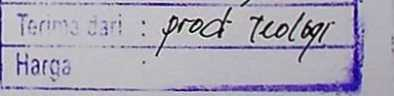 Terima dari : prod Teologi
Harga :